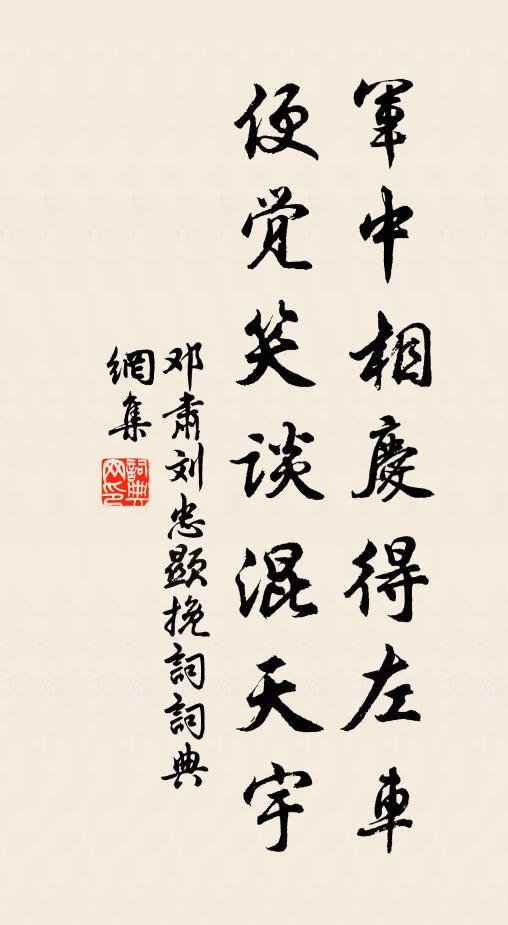 軍中相慶得左車
便觉笑談混天宇
邓肅刘忠顯挽詞詞典
網集
詞典
网印